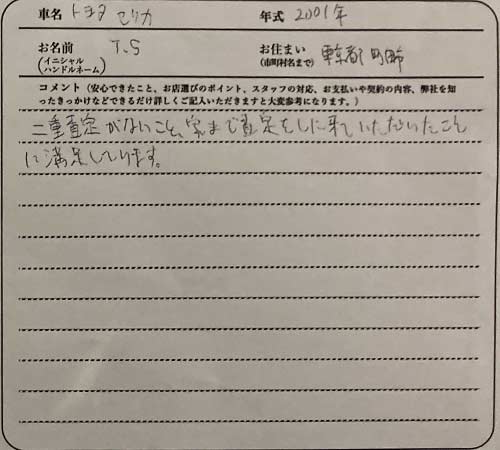 車名 トヨタ セリカ 年式 2001年
お名前 T.S お住まい 東京都 町田
(イニシャル ハンドルネーム) (市町村名まで)
コメント(安心できたこと、お店選びのポイント、スタッフの対応、お支払いや契約の内容、弊社を知
ったきっかけなどできるだけ詳しくご記入いただきますと大変参考になります。)
二重査定がないこと、家まで査定をしに来ていただいたこと
に満足しています。